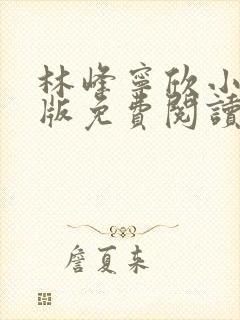 林峰寧欣小
版免費閱讀
詹夏來